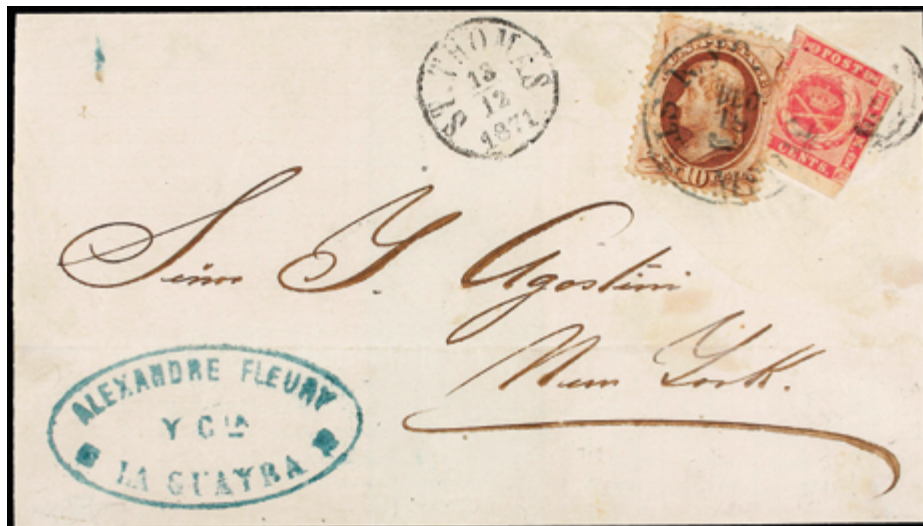 ST. THOMAS
13
12
1871
POST
CENTS.
10
Señor Y. Agostini
New York.
ALEXANDRE FLEURY
Y CIA
LA GUAYRA